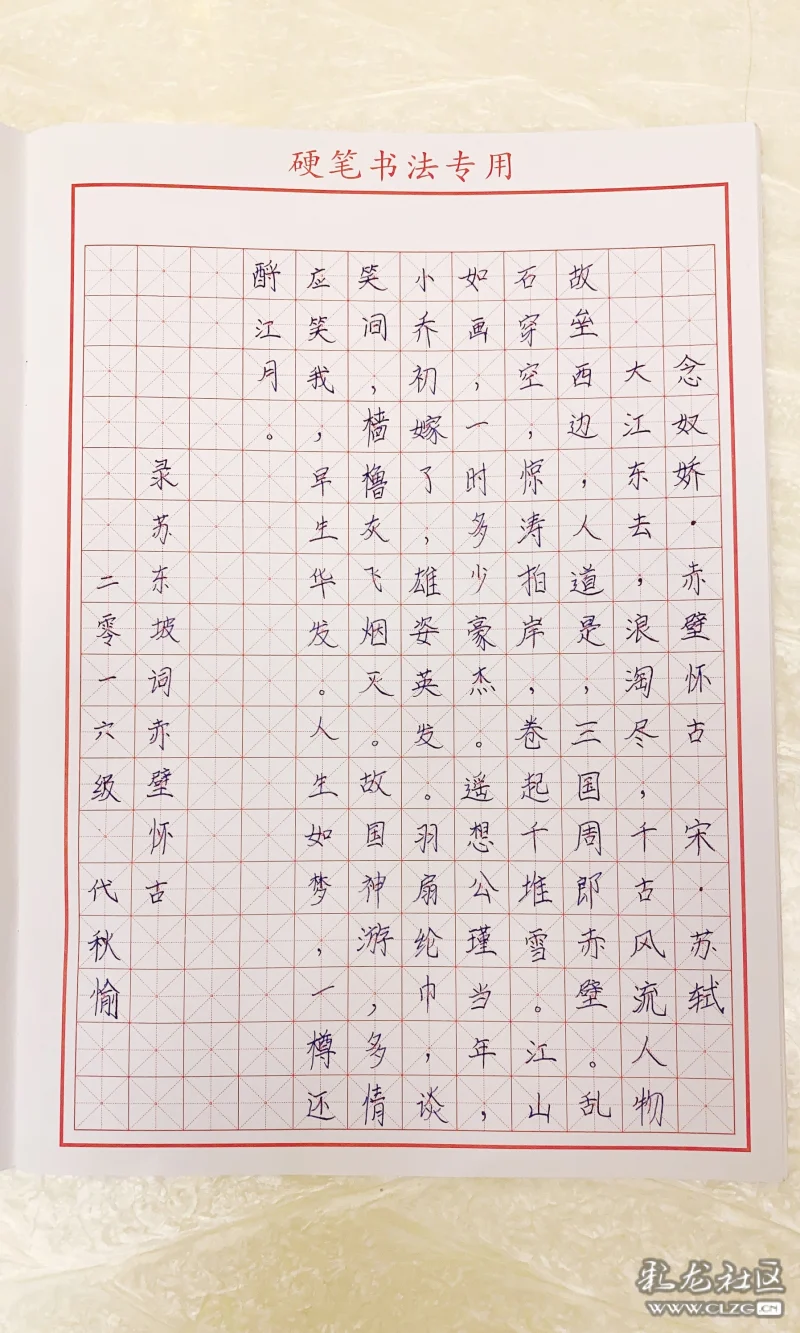 硬笔书法专用
念奴娇·赤壁怀古 宋·苏轼
大江东去，浪淘尽，千古风流人物
故垒西边，人道是，三国周郎赤壁。乱
石穿空，惊涛拍岸，卷起千堆雪。江山
如画，一时多少豪杰。遥想公瑾当年，
小乔初嫁了，雄姿英发。羽扇纶巾，谈
笑间，樯橹灰飞烟灭。故国神游，多情
应笑我，早生华发。人生如梦，一樽还
酹江月。
录苏东坡词赤壁怀古
二零一六级 代秋愉
彩龙社区
www.CLZG.CN